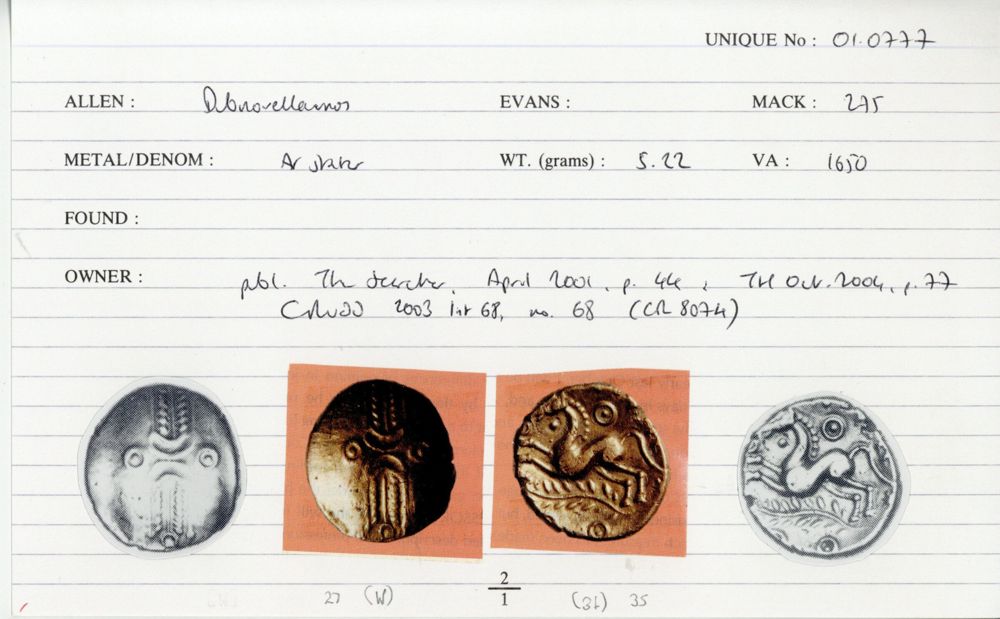 UNIQUE No : 01.0777
ALLEN : Dubnovellaunos EVANS : MACK : 275
METAL/DENOM : AV stater WT. (grams) : 5.22 VA : 1650
FOUND :
OWNER : publ. The Searcher, April 2001, p. 44 ; TH Oct. 2004, p. 77
CRUDD 2003 list 68, no. 68 (CR 8074)
27 (W) 2/1 (31) 35